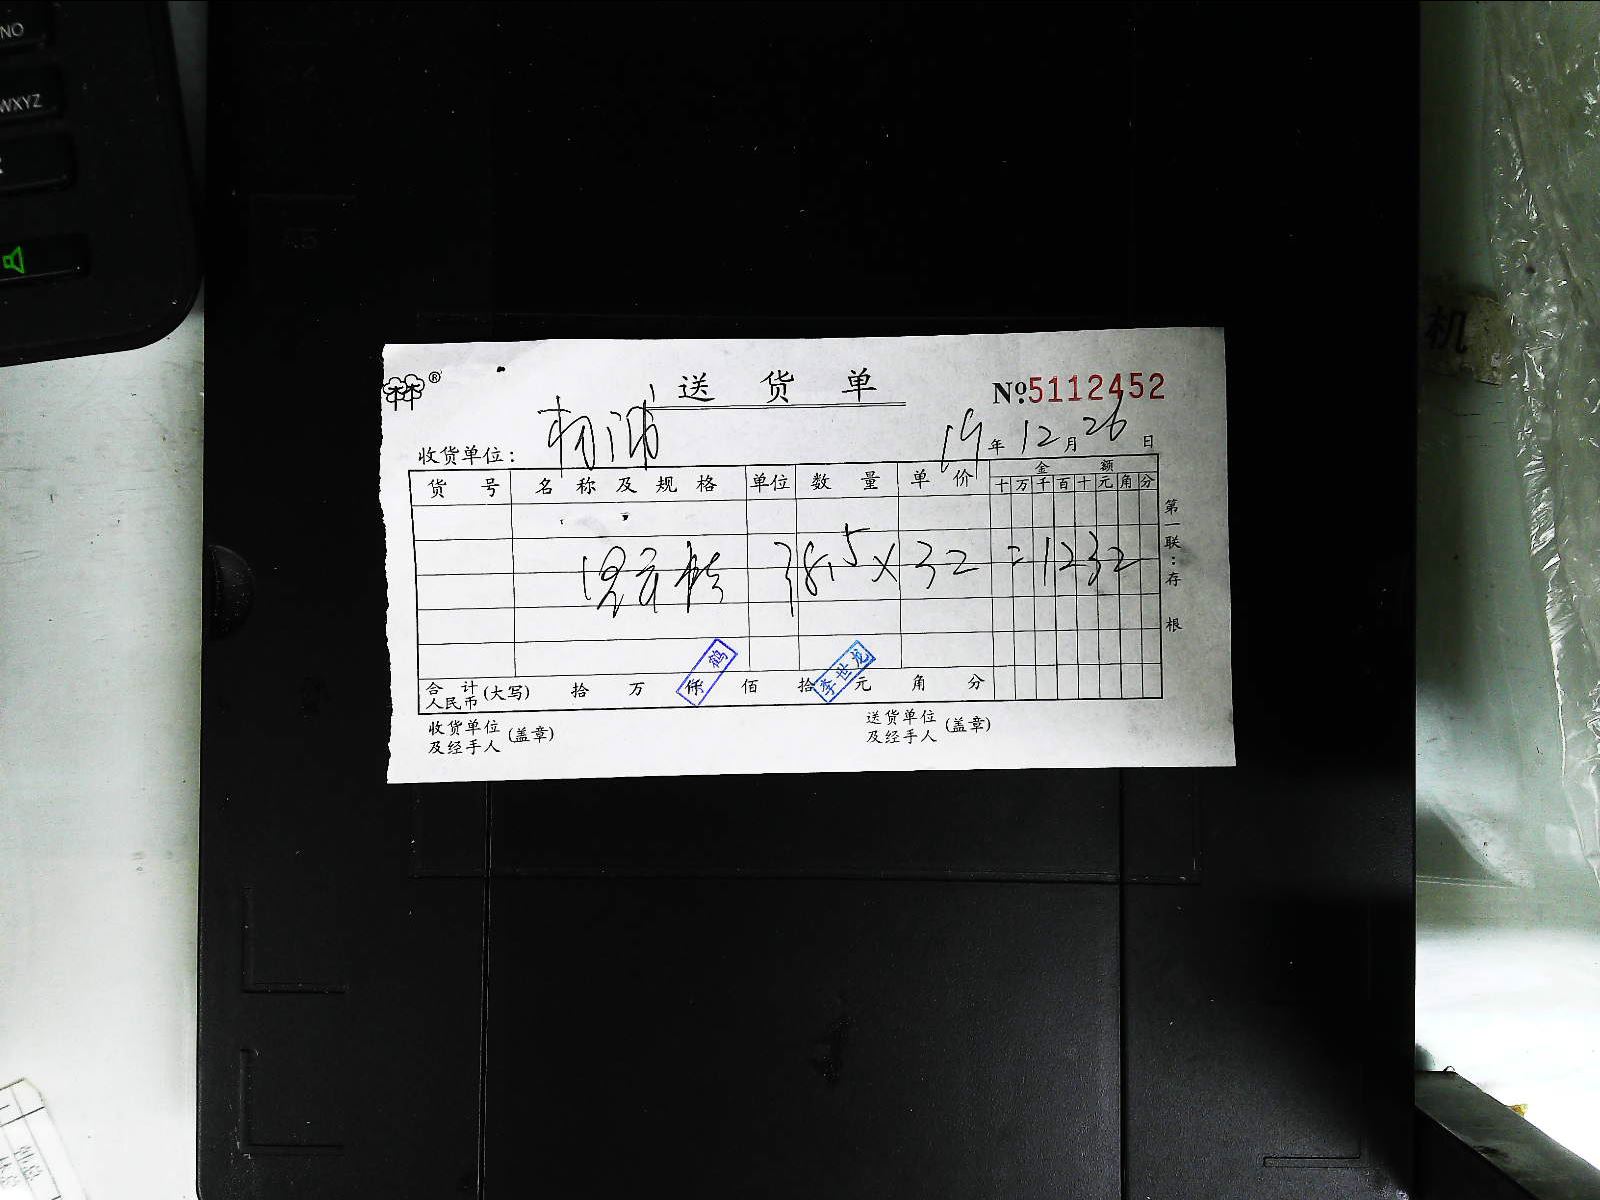 NO
WXYZ
A5
机
®
送货单
№:5112452
收货单位: 杨浦
19年12月26日
货号 名称及规格 单位 数量 单价 金额
十万千百十元角分
38.5×32=1232
第一联:存根
合计人民币(大写) 拾 万 仟 佰 拾 元 角 分
鹤
李世龙
收货单位及经手人(盖章)
送货单位及经手人(盖章)